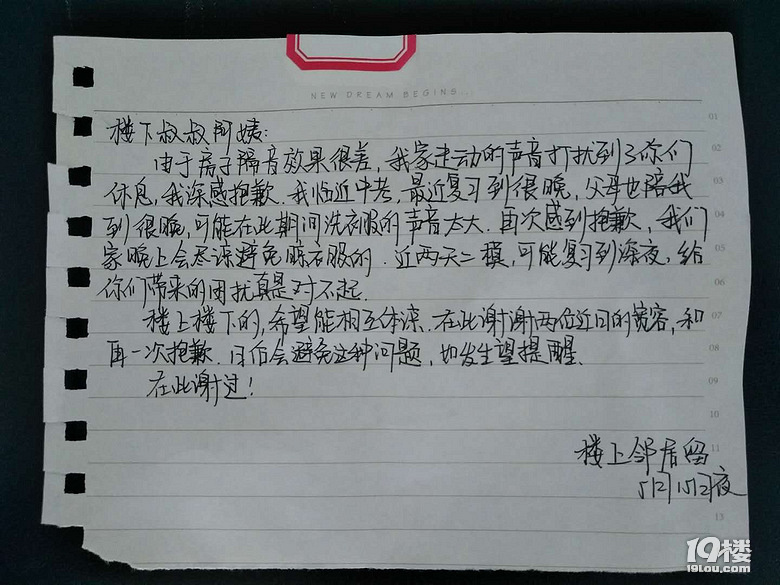 NEW DREAM BEGINS...
楼下叔叔阿姨:
由于房子隔音效果很差，我家走动的声音打扰到了你们
休息，我深感抱歉．我临近中考，最近复习到很晚，父母也陪我
到很晚，可能在此期间洗衣服的声音太大．再次感到抱歉，我们
家晚上会尽谅避免晾衣服的．近两天二模，可能复习到深夜，给
你们带来的困扰真是对不起．
楼上楼下的，希望能相互体谅．在此谢谢两位近日的宽容，和
再一次抱歉．日后会避免这种问题，如发生望提醒．
在此谢过！
楼上邻居留
5月15日夜
01
02
03
04
05
06
07
08
09
10
11
13
19楼
19lou.com